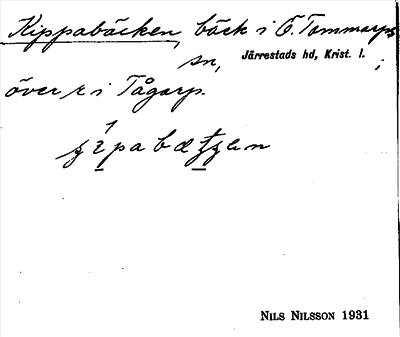 Kippabäcken, bäck i Ö. Tommarps
sn, Järrestads hd, Krist. l. ;
över r i Tågarp.
NILS NILSSON 1931